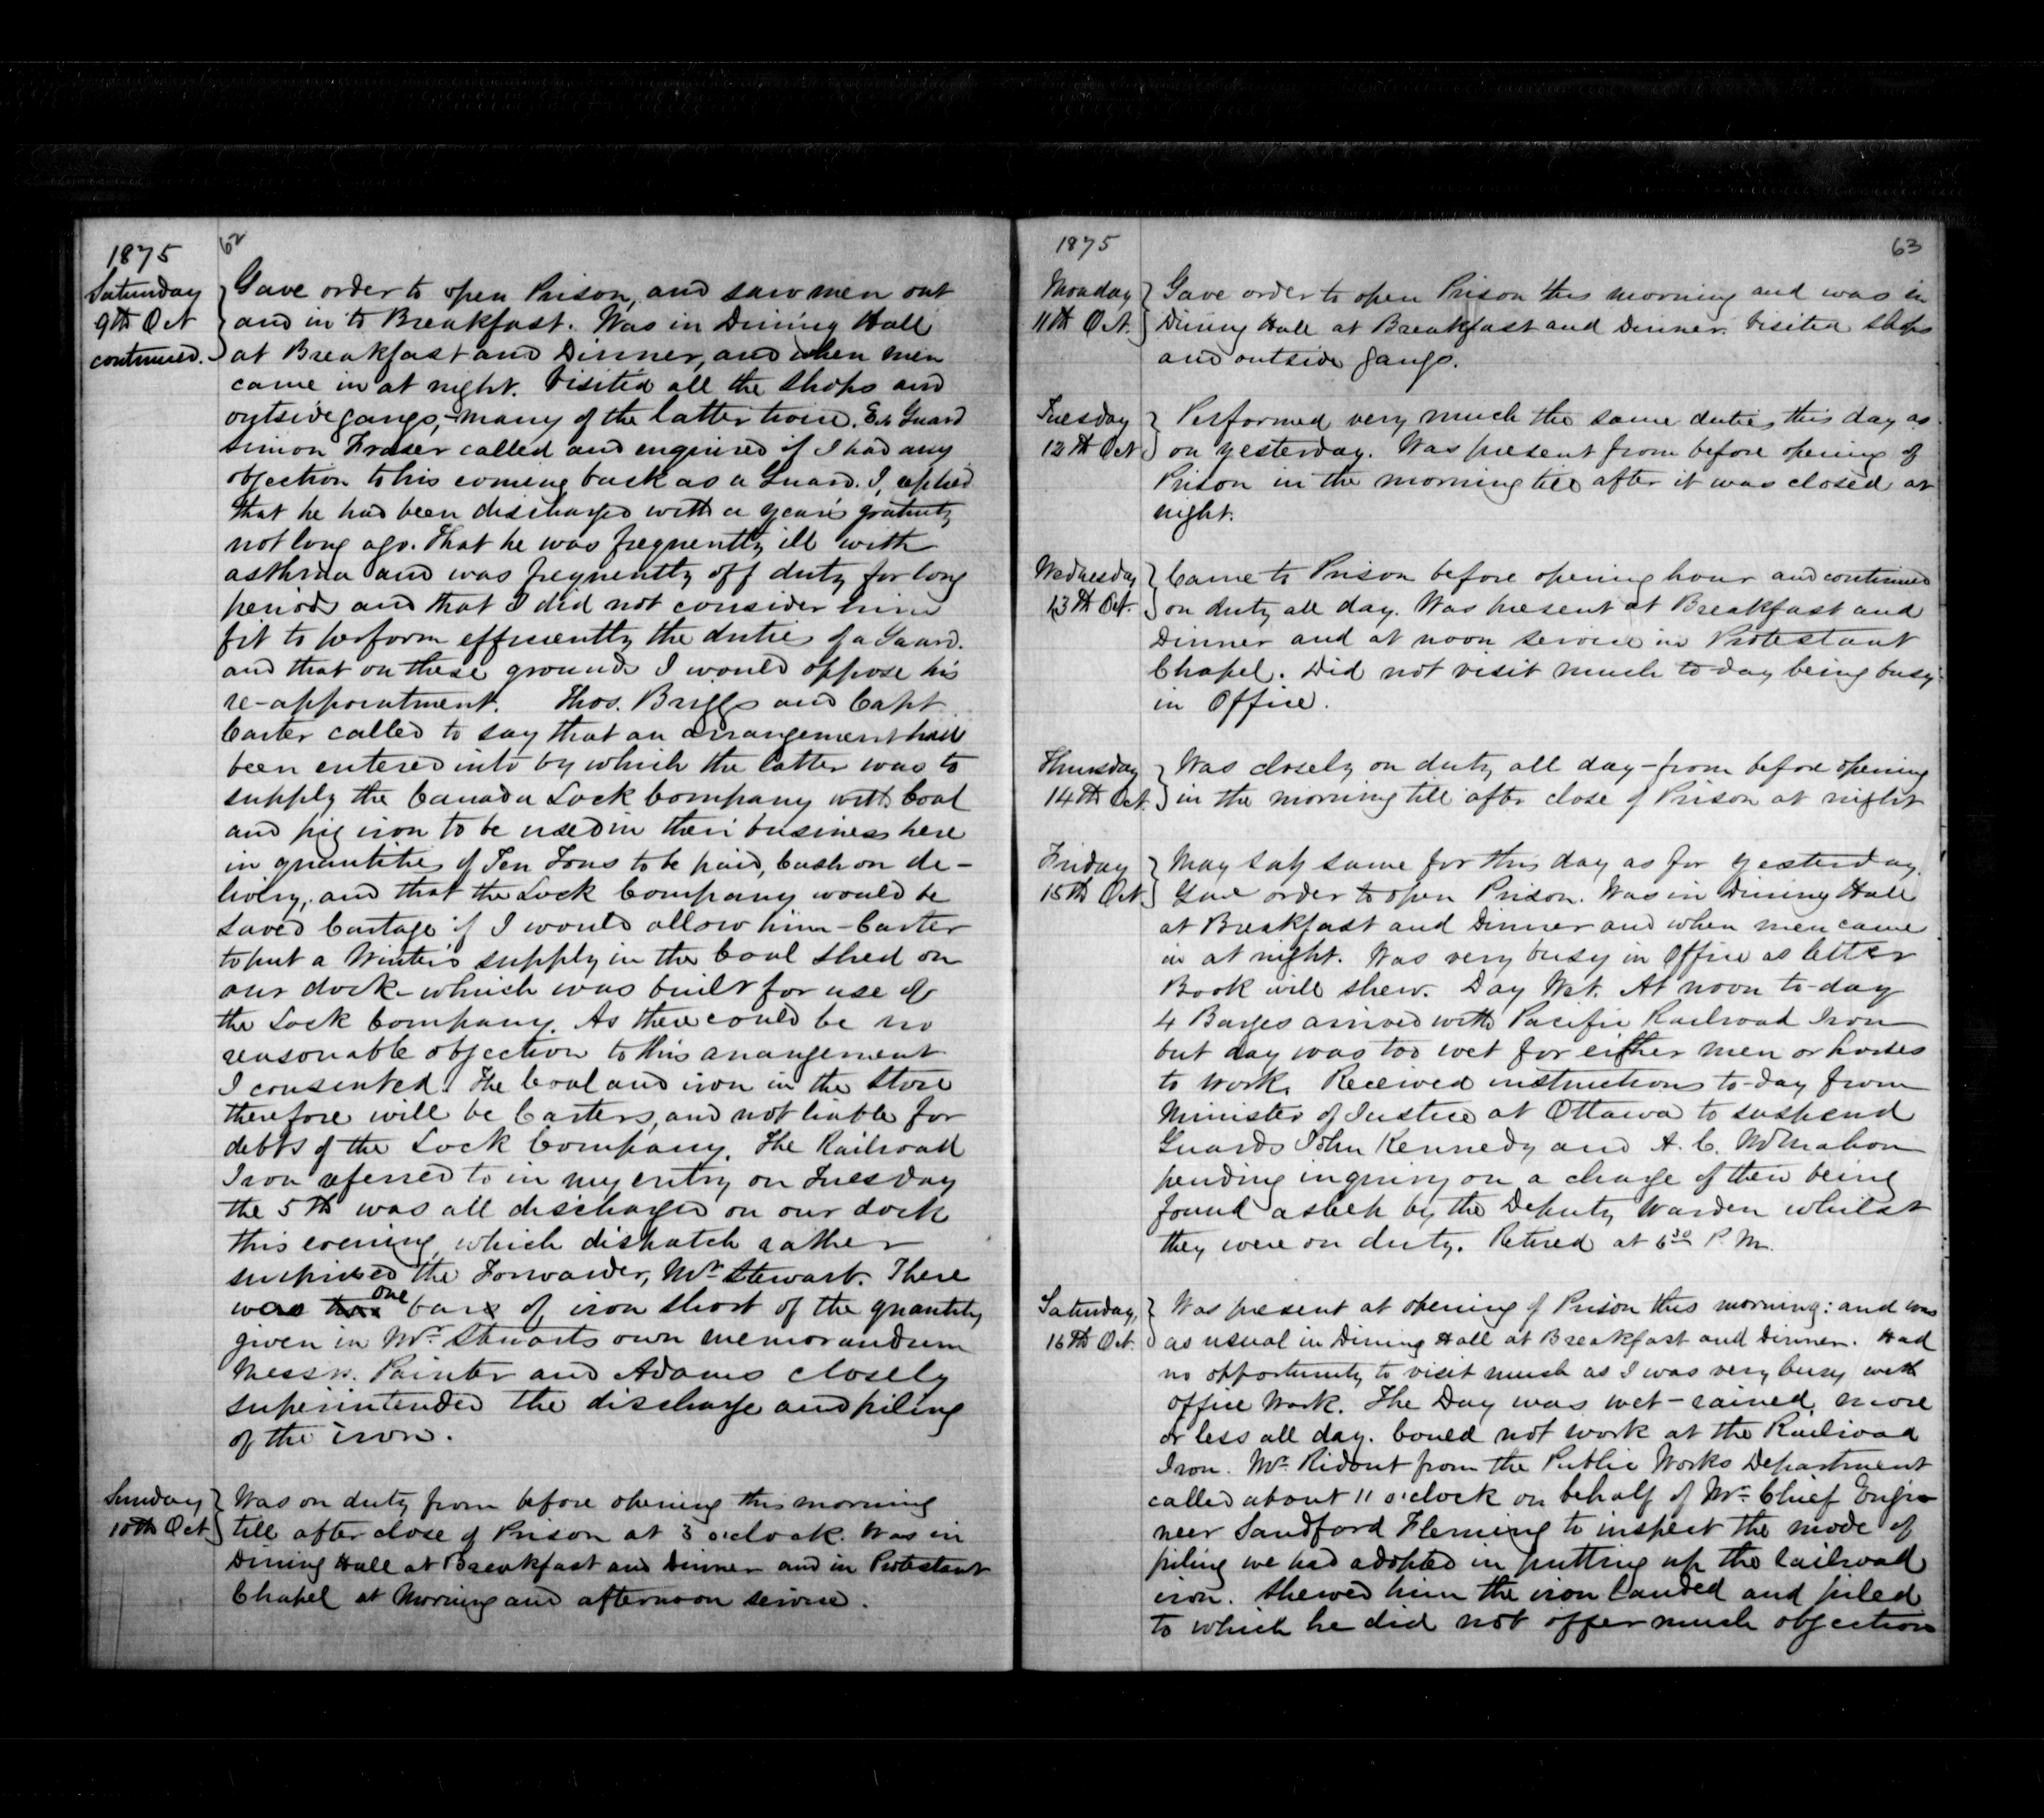 1875
62
Saturday
9th Oct
continued.
Gave order to open Prison, and saw men out
and in to Breakfast. Was in Dining Hall
at Breakfast and Dinner, and when men
came in at night. Visited all the Shops and
outside gangs, - many of the latter twice. Ex Guard
Simon Fraser called and enquired if I had any
objection to his coming back as a Guard. I replied
that he had been discharged with a years gratuity
not long ago. That he was frequently ill with
asthma and was frequently off duty for long
periods and that I did not consider him
fit to perform efficiently the duties of a Guard.
and that on these grounds I would oppose his
re-appointment. Thos. Briggs and Capt
Carter called to say that an arrangement had
been entered into by which the latter was to
supply the Canada Lock Company with Coal
and pig iron to be used in their business here
in quantities of Ten Tons to be paid, Cash on de-
livery, and that the Lock Company would be
saved Cartage if I would allow him - Carter
to put a Winter's supply in the Coal Shed on
our dock which was built for use of
the Lock Company. As there could be no
reasonable objection to this arrangement
I consented. The Coal and iron in the Store
therefore will be Carters, and not liable for
debts of the Lock Company. The Railroad
Iron referred to in my entry on Tuesday
the 5th was all discharged on our dock
this evening, which dispatch rather
surprised the Forwarder, Mr Stewart. There
was one bars of iron short of the quantity
given in Mr Stuarts own memorandum
Messrs. Painter and Adams closely
superintended the discharge and piling
of the iron.
Sunday
10th Oct
Was on duty from before opening this morning
till after close of Prison at 3 o'clock. Was in
Dining Hall at Breakfast and Dinner and in Protestant
Chapel at Morning and afternoon service.
1875
63
Monday
11th Oct.
Gave order to open Prison this morning and was in
Dining Hall at Breakfast and Dinner. Visited Shops
and outside gangs.
Tuesday
12th Oct
Performed very much the same duties this day as
on yesterday. Was present from before opening of
Prison in the morning till after it was closed at
night.
Wednesday
13th Oct.
Came to Prison before opening hour and continued
on duty all day. Was present at Breakfast and
Dinner and at noon service in Protestant
Chapel. Did not visit much to-day being busy
in Office.
Thursday
14th Oct.
Was closely on duty all day - from before opening
in the morning till after close of Prison at night
Friday
15th Oct.
May say same for this day as for yesterday.
Gave order to open Prison. Was in Dining Hall
at Breakfast and Dinner and when men came
in at night. Was very busy in Office as letter
Book will shew. Day Wet. At noon to-day
4 Barges arrived with Pacific Railroad Iron
but day was too wet for either men or horses
to work. Received instructions to-day from
Minister of Justice at Ottawa to suspend
Guards John Kennedy and A. C. McMahon
pending inquiry on a charge of their being
found asleep by the Deputy Warden whilst
they were on duty. Retired at 6 30 P.M.
Saturday,
16th Oct.
Was present at opening of Prison this morning: and was
as usual in Dining Hall at Breakfast and Dinner. Had
no opportunity to visit much as I was very busy with
office work. The Day was wet - rained more
or less all day. Could not work at the Railroad
Iron. Mr. Ridout from the Public Works Department
called about 11 o'clock on behalf of Mr. Chief Engi-
neer Sandford Fleming to inspect the mode of
piling we had adopted in putting up the railroad
iron. Shewed him the iron landed and piled
to which he did not offer much objection